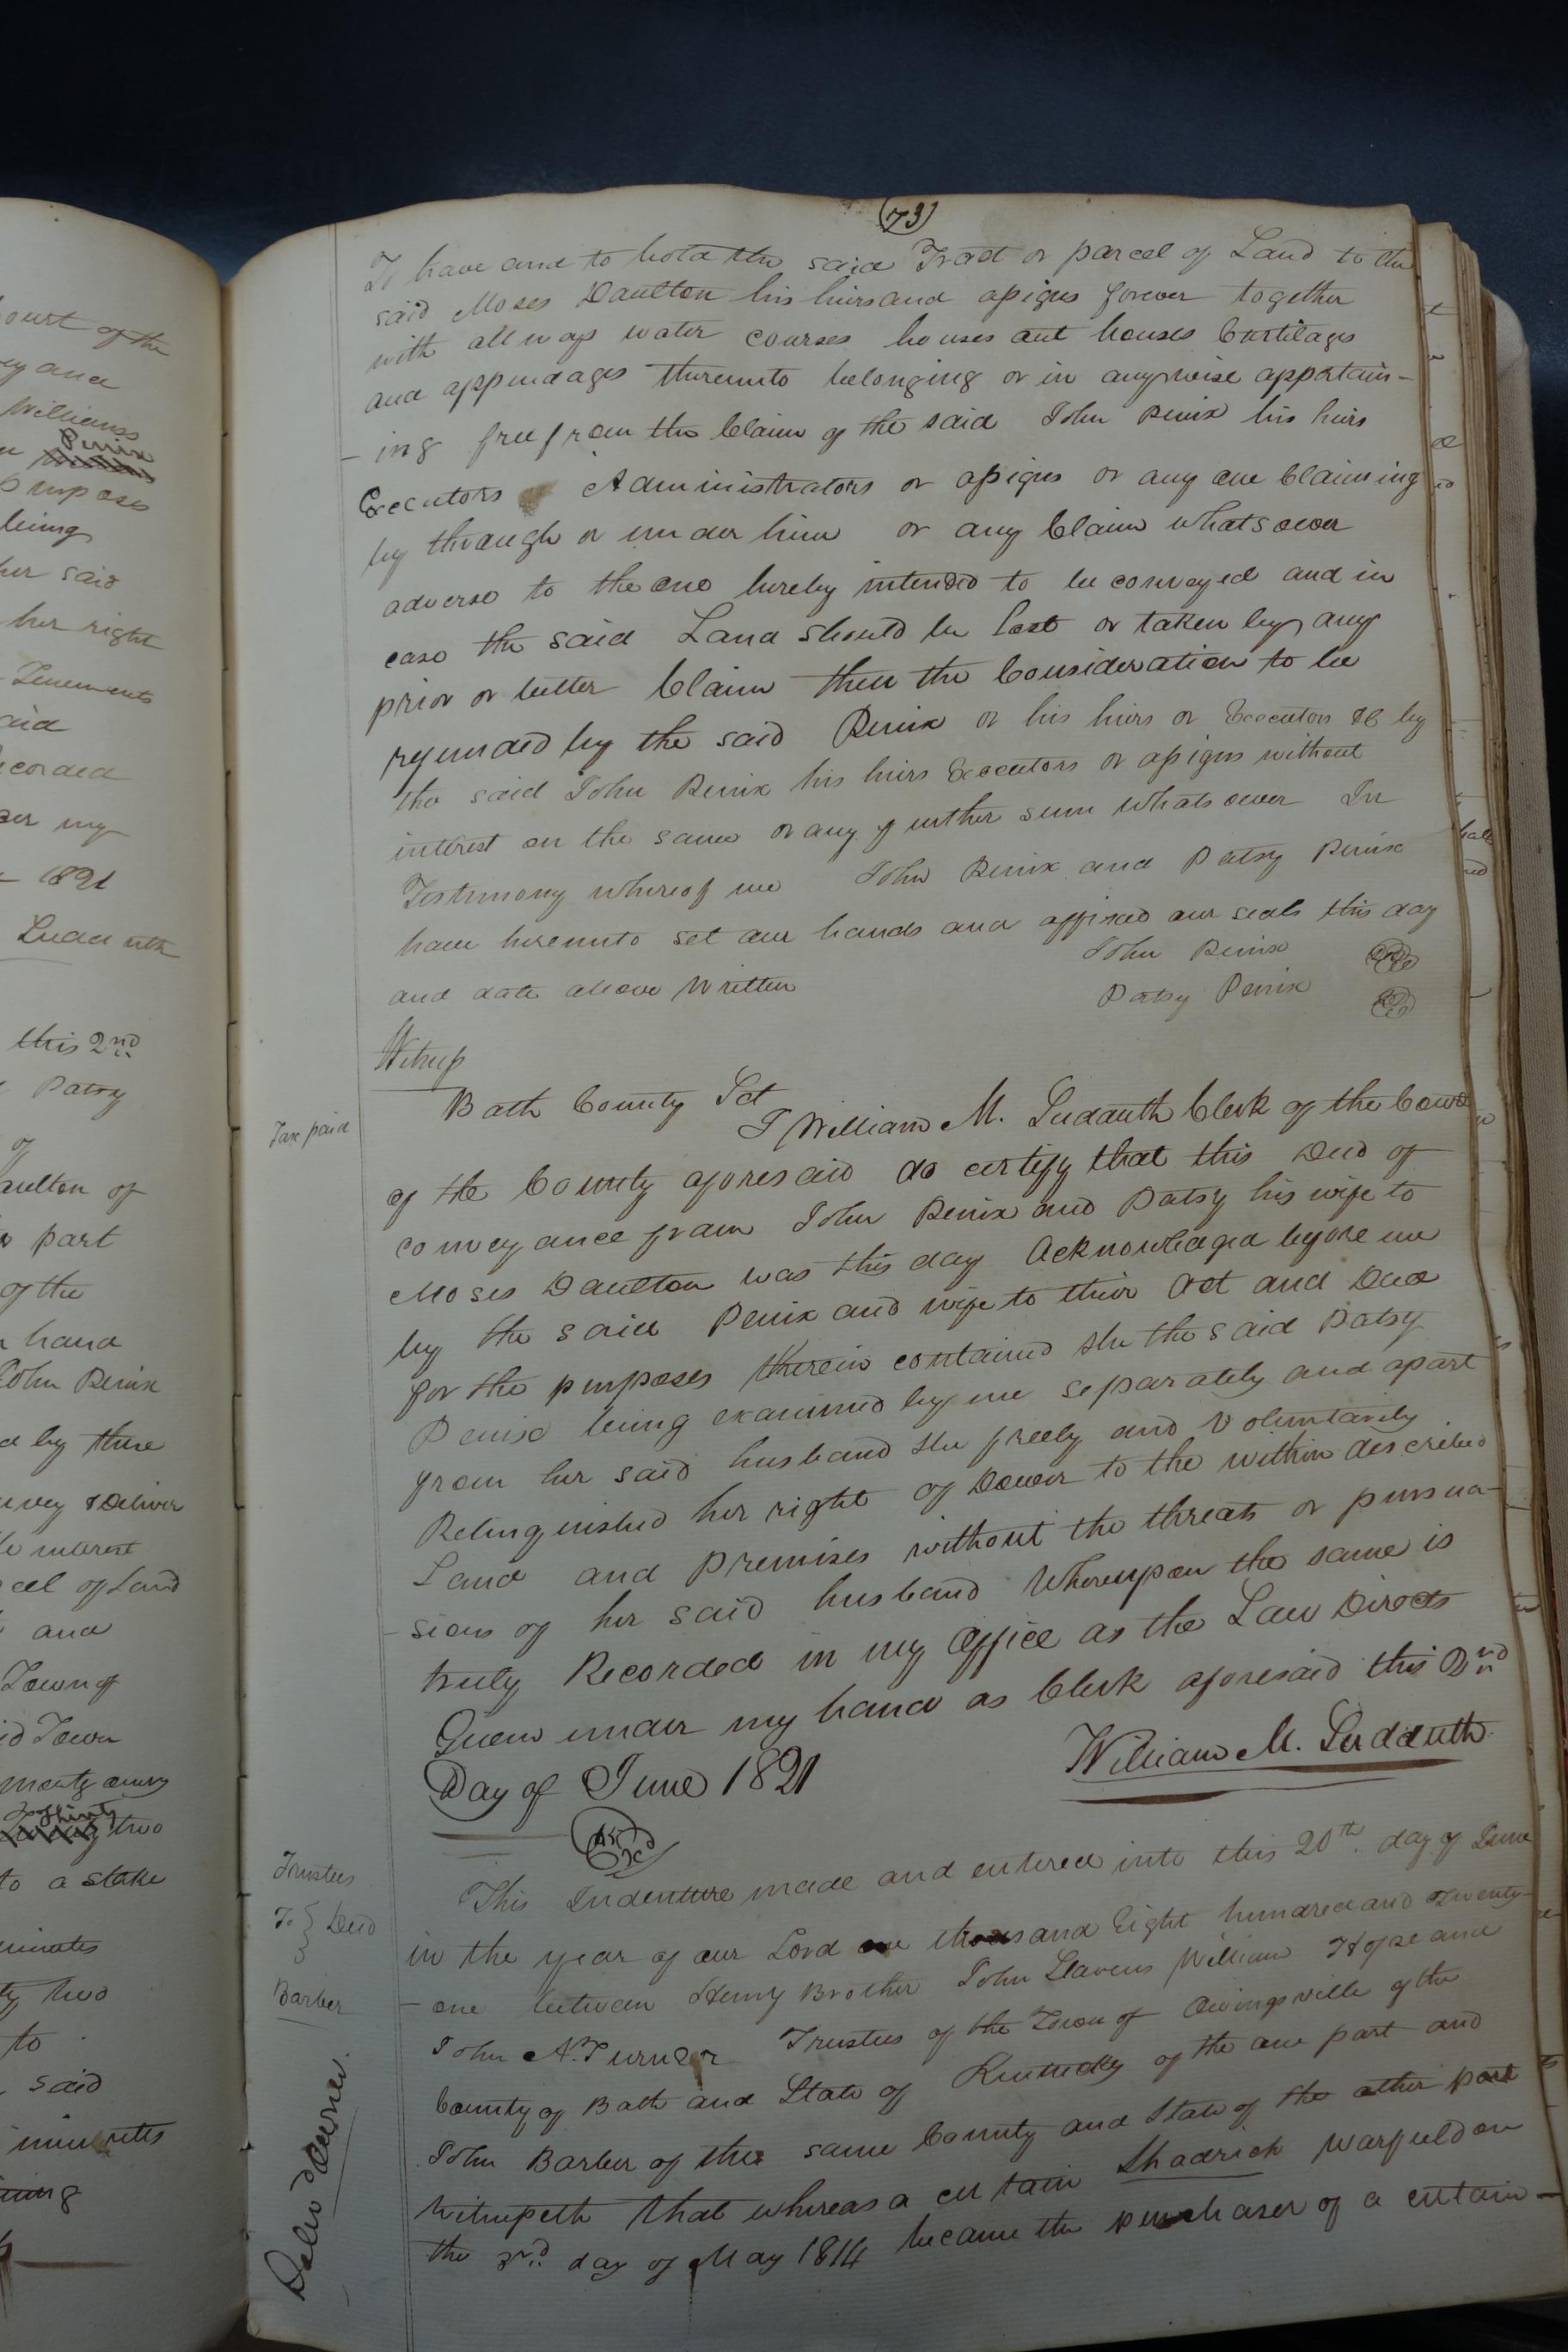 ourt of the
ey and
Williams
Penix
purposes
being
her said
her right
Tenements
aid
ecorded
der my
1821
Sudduth
this 2nd
Patsy
of
aulton of
part
of the
hand
John Penix
d by these
nvey & Deliver
interest
cel of Land
and
Town of
id Town
thirty two
to a stake
minutes
ty two
to
said
minutes
(73)
To have and to hold the said Tract or parcel of Land to the
said Moses Daulton his heirs and assigns forever together
with all ways water courses houses out houses Curtilages
and appendages thereunto belonging or in anywise appertain-
-ing free from the Claim of the said John Penix his heirs
Executors Administrators or assigns or any one Claiming
by through or under him or any Claim whatsoever
adverse to the one hereby intended to be conveyed and in
case the said Land should be lost or taken by any
prior or better Claim then the Consideration to be
refunded by the said Penix or his heirs or Executors &c by
the said John Penix his heirs Executors or assigns without
interest on the same or any further sum whatsoever In
Testimony whereof we John Penix and Patsy Penix
have hereunto set our hands and affixed our seals this day
and date above Written
John Penix
Patsy Penix
Witness
Tax paid
Bath County Sct
I William M. Sudduth Clerk of the Court
of the County aforesaid do certify that this Deed of
conveyance from John Penix and Patsy his wife to
Moses Daulton was this day Acknowledged before me
by the said Penix and wife to their Act and Deed
for the purposes therein contained she the said Patsy
Penix being examined by me separately and apart
from her said husband she freely and Voluntarily
Relinquished her right of Dower to the within described
Land and Premises without the threats or persua-
-sions of her said husband Whereupon the same is
truly Recorded in my Office as the Law Directs
Given under my hand as Clerk aforesaid this 2nd
Day of June 1821
William M. Sudduth
Trustees
To } Deed
Barber
This Indenture made and entered into this 20th day of June
in the year of our Lord one thousand Eight hundred and Twenty-
-one between Henry Brother John Slavens William Hope and
John A. Turner Trustees of the Town of Owingsville of the
County of Bath and State of Kentucky of the one part and
John Barber of the same County and State of the other part
Witnesseth that whereas a certain Shadrick Warfield on
the 3rd day of May 1814 became the purchaser of a certain